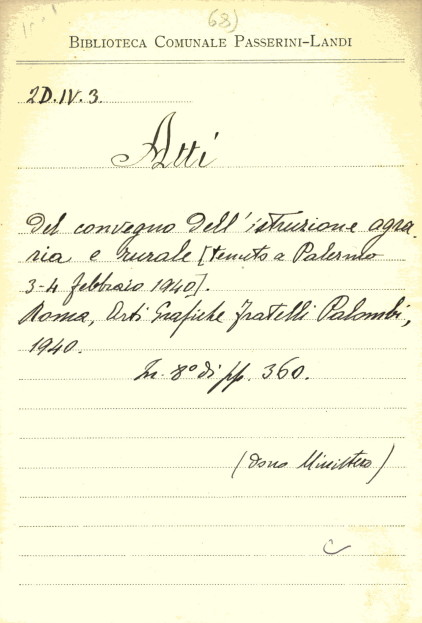 68)
BIBLIOTECA COMUNALE PASSERINI-LANDI
2D.IV.3.
Atti
Del convegno dell'istruzione agra-
ria e rurale [tenuto a Palermo
3-4 febbraio 1940].
Roma, Arti Grafiche Fratelli Palombi,
1940.
In. 8° di pp. 360.
(dono Ministero)
C